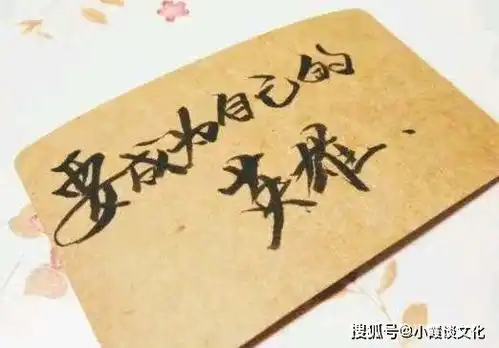 要成为自己的
英雄.
搜狐号@小霞谈文化